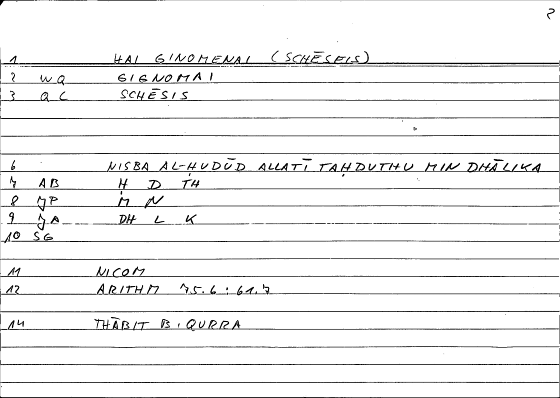 2
1 HAI GINOMENAI (SCHĒSEIS)
2 WQ GIGNOMAI
3 QC SCHĒSIS
6 NISBA AL-ḤUDŪD ALLATĪ TAḤDUTHU MIN DHĀLIKA
7 AB Ḥ D TH
8 M N
9 DH L K
10 SG
11 NICOM
12 ARITHM 75.6 : 61.7
14 THĀBIT B. QURRA